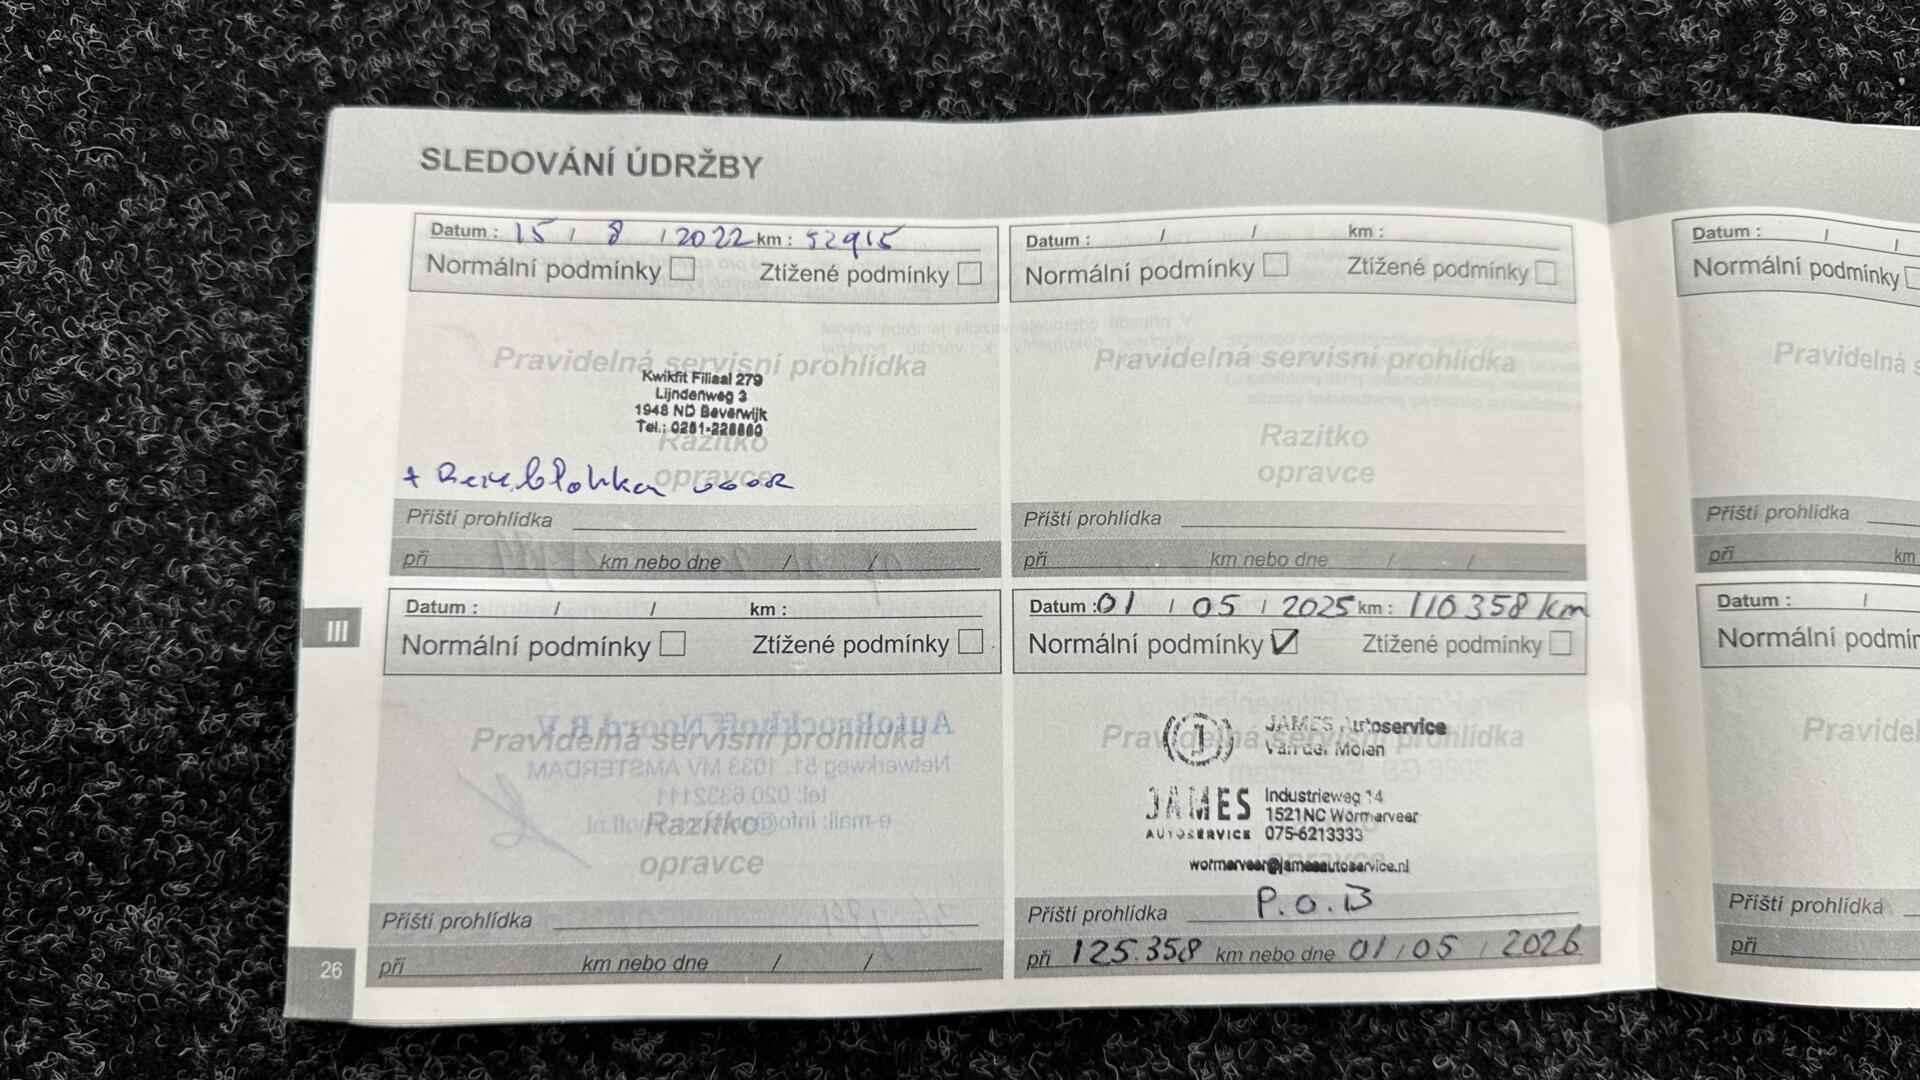 SLEDOVÁNÍ ÚDRŽBY
Datum : 15 / 8 / 2022 km : 52915
Normální podmínky Ztížené podmínky
Pravidelná servisní prohlídka
Kwikfit Filiaal 279
Lijndenweg 3
1948 ND Beverwijk
Tel.: 0251-228880
Razítko
opravce
+ Remblokken voor
Příští prohlídka
při km nebo dne / /
Datum : / / km :
Normální podmínky Ztížené podmínky
Pravidelná servisní prohlídka
Razítko
opravce
Příští prohlídka
při km nebo dne / /
Datum : / / km :
Normální podmínky Ztížené podmínky
Pravidelná servisní prohlídka
Razítko
opravce
Příští prohlídka
při km nebo dne / /
Datum : 01 / 05 / 2025 km : 110358 km
Normální podmínky Ztížené podmínky
Pravidelná servisní prohlídka
J JAMES Autoservice
van der Molen
JAMES Industrieweg 14
1521NC Wormerveer
AUTOSERVICE 075-6213333
wormerveer@jamesautoservice.nl
P.O.B
Příští prohlídka
při 125.358 km nebo dne 01 / 05 / 2026
Datum : / /
Normální podmínky
Pravidelná
Příští prohlídka
při km
Datum : /
Normální
Příští prohlídka
při
III
26